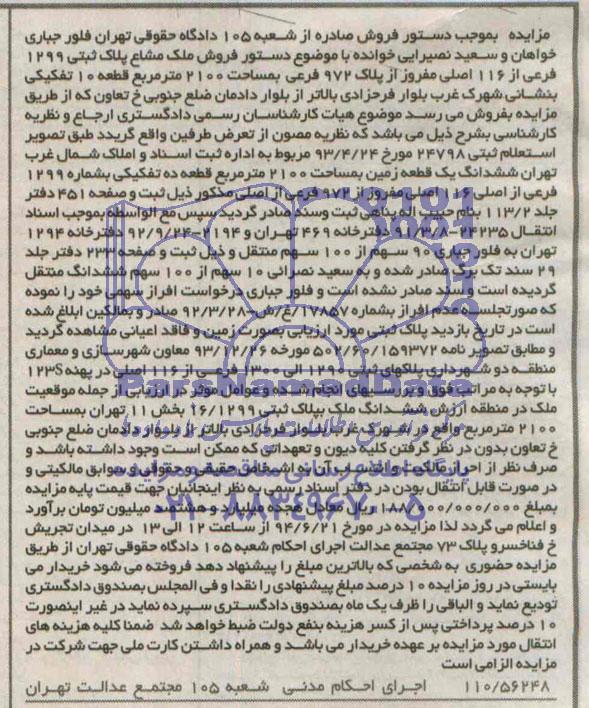 مزایده بموجب دستور فروش صادره از شعبه ۱۰۵ دادگاه حقوقی تهران فلور جباری
خواهان و سعید نصیرایی خوانده با موضوع دستور فروش ملک مشاع پلاک ثبتی ۱۲۹۹
فرعی از ۱۱۶ اصلی مفروز از پلاک ۹۷۲ فرعی بمساحت ۲۱۰۰ مترمربع قطعه ۱۰ تفکیکی
بنشانی شهرک غرب بلوار فرحزادی بالاتر از بلوار دادمان ضلع جنوبی خ تعاون که از طریق
مزایده بفروش می رسد موضوع هیات کارشناسان رسمی دادگستری ارجاع و نظریه
کارشناسی بشرح ذیل می باشد که نظریه مصون از تعرض طرفین واقع گردید طبق تصویر
استعلام ثبتی ۲۴۷۹۸ مورخ ۹۳/۴/۲۴ مربوط به اداره ثبت اسناد و املاک شمال غرب
تهران ششدانگ یک قطعه زمین بمساحت ۲۱۰۰ مترمربع قطعه ده تفکیکی بشماره ۱۲۹۹
فرعی از اصلی ۱۱۶ اصلی مفروز از ۹۷۲ فرعی از اصلی مذکور ذیل ثبت و صفحه ۴۵۱ دفتر
جلد ۱۱۳/۲ بنام حبیب اله پناهی ثبت وسند صادر گردید سپس مع الواسطه بموجب اسناد
انتقال ۲۴۲۳۵-۹۱/۳/۸ دفترخانه ۴۶۹ تهران و ۲۱۹۴-۹۲/۹/۲۴ دفترخانه ۱۲۹۴
تهران به فلور جباری ۹۰ سهم از ۱۰۰ سهم منتقل و ذیل ثبت و صفحه ۲۳۳ دفتر جلد
۲۹ سند تک برگ صادر شده و به سعید نصرائی ۱۰ سهم از ۱۰۰ سهم ششدانگ منتقل
گردیده است و سند صادر نشده است و فلور جباری درخواست افراز سهمی خود را نموده
که صورتجلسه عدم افراز بشماره ۱۷۸۵۷/غ/ش-۹۲/۳/۲۸ صادر و بمالکین ابلاغ شده
است در تاریخ بازدید پلاک ثبتی مورد ارزیابی بصورت زمین و فاقد اعیانی مشاهده گردید
و مطابق تصویر نامه ۵۰۲/۶۰/۱۵۹۳۷۲ مورخه ۹۳/۱۲/۲۶ معاون شهرسازی و معماری
منطقه دو شهرداری پلاکهای ثبتی ۱۲۹۰ الی ۱۳۰۰ فرعی از ۱۱۶ اصلی در پهنه S۱۲۳
با توجه به مراتب فوق و بررسیهای انجام شده و عوامل موثر در ارزیابی از جمله موقعیت
ملک در منطقه ارزش ششدانگ ملک بپلاک ثبتی ۱۶/۱۲۹۹ بخش ۱۱ تهران بمساحت
۲۱۰۰ مترمربع واقع در شهرک غرب بلوار فرحزادی بالاتر از بلوار دادمان ضلع جنوبی
خ تعاون بدون در نظر گرفتن کلیه دیون و تعهداتی که ممکن است وجود داشته باشد و
صرف نظر از احراز مالکیت و انتساب آن به اشخاص حقیقی و حقوقی و سوابق مالکیتی و
در صورت قابل انتقال بودن در دفتر اسناد رسمی به نظر اینجانبان جهت قیمت پایه مزایده
بمبلغ ۱۸۸/۰۰۰/۰۰۰/۰۰۰ ریال معادل هجده میلیارد و هشتصد میلیون تومان برآورد
و اعلام می گردد لذا مزایده در مورخ ۹۴/۶/۲۱ از ساعت ۱۲ الی ۱۳ در میدان تجریش
خ فناخسرو پلاک ۷۳ مجتمع عدالت اجرای احکام شعبه ۱۰۵ دادگاه حقوقی تهران از طریق
مزایده حضوری به شخصی که بالاترین مبلغ را پیشنهاد دهد فروخته می شود خریدار می
بایستی در روز مزایده ۱۰ درصد مبلغ پیشنهادی را نقدا و فی المجلس بصندوق دادگستری
تودیع نماید و الباقی را ظرف یک ماه بصندوق دادگستری سپرده نماید در غیر اینصورت
۱۰ درصد پرداختی پس از کسر هزینه بنفع دولت ضبط خواهد شد ضمنا کلیه هزینه های
انتقال مورد مزایده بر عهده خریدار می باشد و همراه داشتن کارت ملی جهت شرکت در
مزایده الزامی است
۱۱۰/۵۶۲۴۸ اجرای احکام مدنی شعبه ۱۰۵ مجتمع عدالت تهران
ParsNamadData
۰۲۱-۸۸۳۴۹۶۷۰-۵